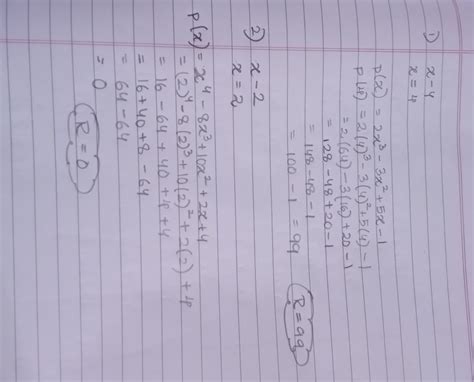 1) x-4
x=4
p(x) = 2x³ - 3x² + 5x - 1
p(4) = 2(4)³ - 3(4)² + 5(4) - 1
= 2(64) - 3(16) + 20 - 1
= 128 - 48 + 20 - 1
= 148 - 48 - 1
= 100 - 1 = 99
R = 99
2) x-2
x=2
p(x) = x⁴ - 8x³ + 10x² + 2x + 4
= (2)⁴ - 8(2)³ + 10(2)² + 2(2) + 4
= 16 - 64 + 40 + 4 + 4
= 16 + 40 + 8 - 64
= 64 - 64
= 0
R = 0